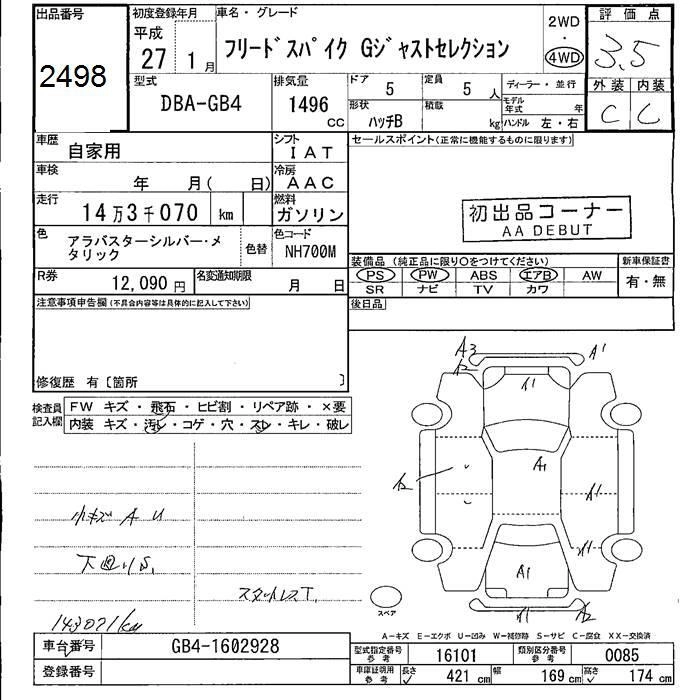 出品番号
2498
初度登録年月
平成
27 1月
車名・グレード
フリードスパイク Gジャストセレクション
2WD
・
4WD
評価点
3.5
外装 内装
C C
型式
DBA-GB4
排気量
1496
CC
ドア 5
定員 5 人
形状 ハッチB
積載 kg
ディーラー・並行
モデル年式 年
ハンドル 左・右
車歴
自家用
シフト
IAT
車検
年 月( 日)
冷房
AAC
走行
14万3千070 km
燃料
ガソリン
色
アラバスターシルバー・メタリック
色替
色コード
NH700M
R券
12,090円
名変通知期限
月 日
セールスポイント(正常に機能するものに限ります)
初出品コーナー
AA DEBUT
装備品 (純正品に限り○をつけてください)
PS PW ABS エアB AW
SR ナビ TV カワ
新車保証書
有・無
後日品
注意事項申告欄(不具合内容等は具体的に記入して下さい)
修復歴 有〔箇所 〕
検査員記入欄
FW キズ・飛石・ヒビ割・リペア跡・×要
内装 キズ・汚レ・コゲ・穴・スレ・キレ・破レ
小キズ A U
下回りS,
スタットレスT,
143071km
A3
A1
A2
A1
A1
A2
A1
A1
A1
A1
A1
A2
スペア
A－キズ E－エクボ U－凹み W－補修跡 S－サビ C－腐食 XX－交換済
車台番号
GB4-1602928
登録番号
型式指定番号 参考
16101
類別区分番号 参考
0085
車庫証明用 参考
長さ 421 cm
幅 169 cm
高さ 174 cm